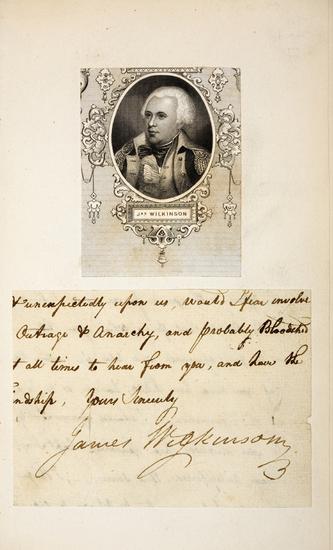 Jas WILKINSON
& unexpectedly upon us, would I fear involve
Outrage & Anarchy, and probably Bloodshed
t all times to hear from you, and have the
ndship, Yours Sincerely
James Wilkinson